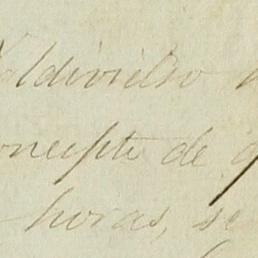 Valdivielso
concepto de q
horas, se